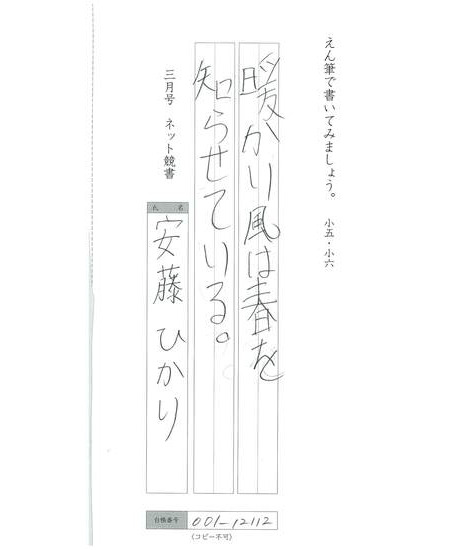 えん筆で書いてみましょう。 小五・小六
暖かい風は春を
知らせている。
三月号 ネット競書
氏名
安藤ひかり
台帳番号 001-12112
(コピー不可)